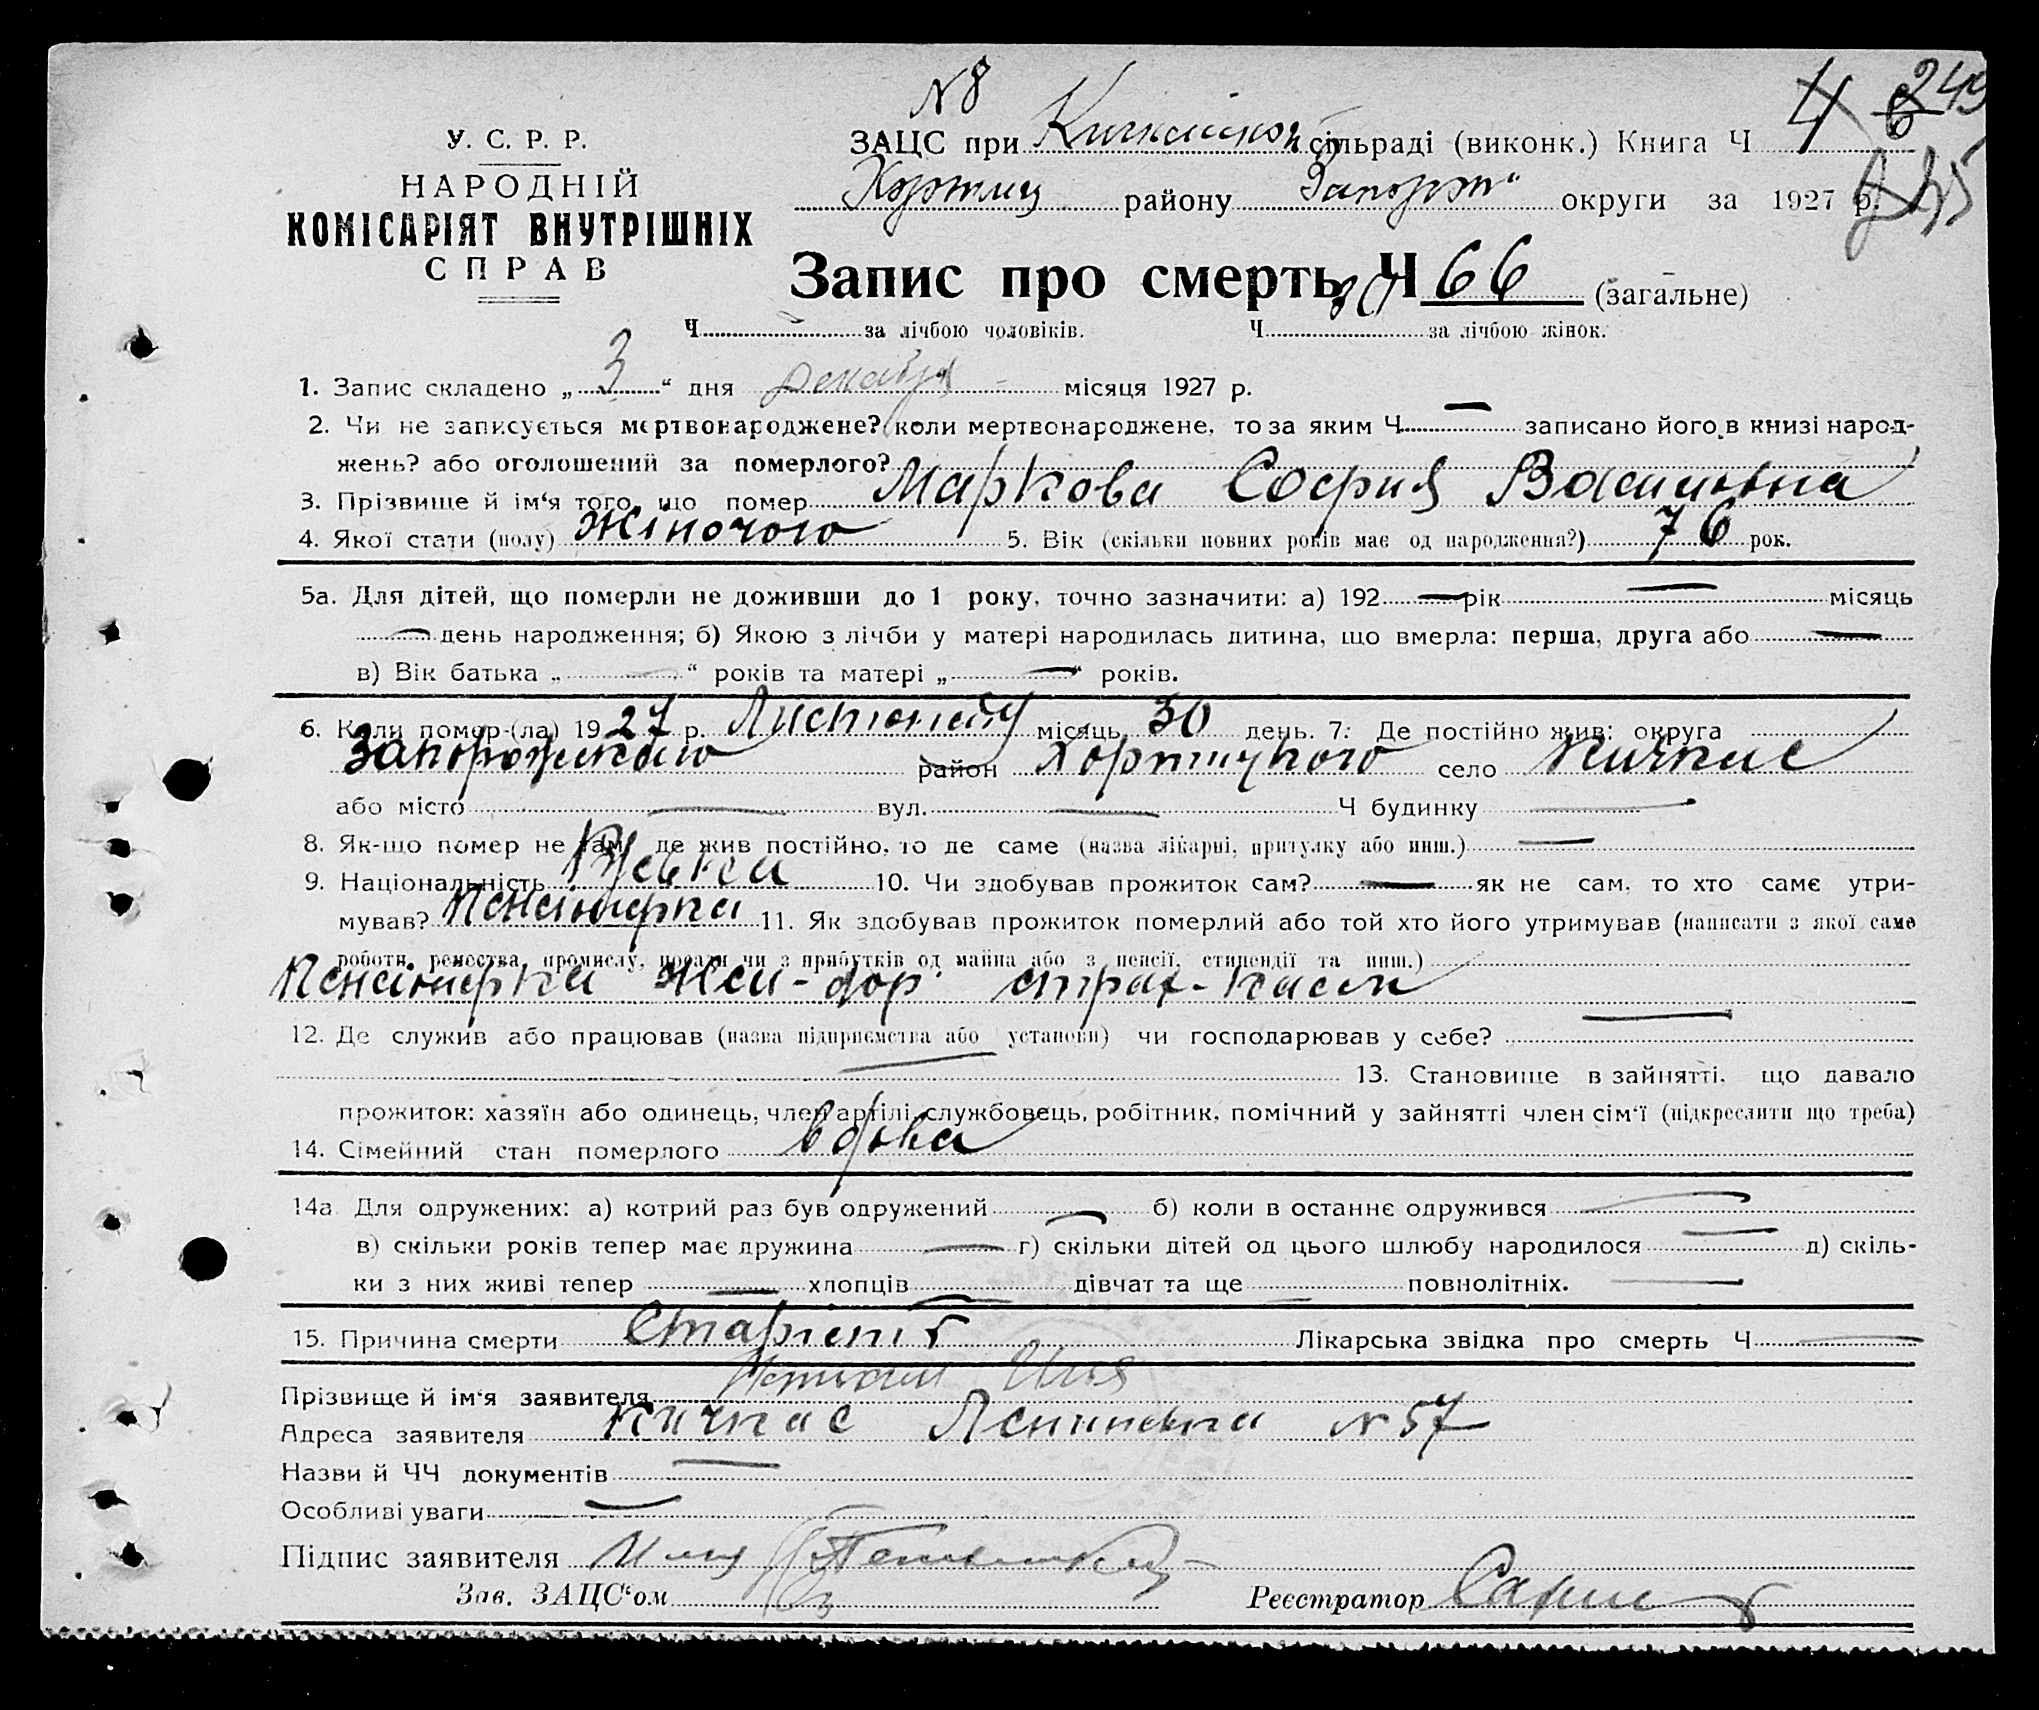 N 8
У. С. Р. Р.
НАРОДНІЙ
КОМІСАРІЯТ ВНУТРІШНІХ
СПРАВ
ЗАЦС при Кичкаській сільраді (виконк.) Книга Ч 4 6 249
Хортиц району Запорож" округи за 1927 р.
Запис про смерть Ч 66 (загальне)
Ч за лічбою чоловіків. Ч за лічбою жінок.
1. Запис складено „ 3 “ дня декабря місяця 1927 р.
2. Чи не записується мертвонароджене? коли мертвонароджене, то за яким Ч — записано його в книзі народ-
жень? або оголошений за померлого?
3. Прізвище й ім‘я того, що помер Маркова София Васильевна
4. Якої стати (полу) Жіночого 5. Вік (скільки повних років має од народження?) 76 рок.
5а. Для дітей, що померли не доживши до 1 року, точно зазначити: а) 192 — рік — місяць
— день народження; б) Якою з лічби у матері народилась дитина, що вмерла: перша, друга або —
в) Вік батька „ — “ років та матері „ — “ років.
6. Коли помер-(ла) 1927 р. Листопаду місяць 30 день. 7. Де постійно жив: округа
Запорожського район Хортицького село Кичкас
або місто — вул. — Ч будинку —
8. Як-що помер не там, де жив постійно, то де саме (назва лікарні, притулку або инш.) —
9. Національність Руська 10. Чи здобував прожиток сам? — як не сам, то хто саме утри-
мував? Пенсіонерка 11. Як здобував прожиток померлий або той хто його утримував (написати з якої саме
роботи, ремества, промислу, поради чи з прибутків од майна або з пенсії, стипендії та инш.)
Пенсіонерка Жел-дор. страх-касси
12. Де служив або працював (назва підприємства або установи) чи господарював у себе? —
— 13. Становище в зайнятті, що давало
прожиток: хазяїн або одинець, член артілі, службовець, робітник, помічний у зайнятті член сім‘ї (підкреслити що треба)
14. Сімейний стан померлого вдова
14а. Для одружених: а) котрий раз був одружений — б) коли в останнє одружився —
в) скільки років тепер має дружина — г) скільки дітей од цього шлюбу народилося — д) скіль-
ки з них живі тепер — хлопців — дівчат та ще — повнолітніх. —
15. Причина смерти Старість Лікарська звідка про смерть Ч —
Прізвище й ім‘я заявителя
Адреса заявителя Кичкас Ленинська N 57
Назви й ЧЧ документів —
Особливі уваги —
Підпис заявителя
Зав. ЗАЦС“ом
Реєстратор